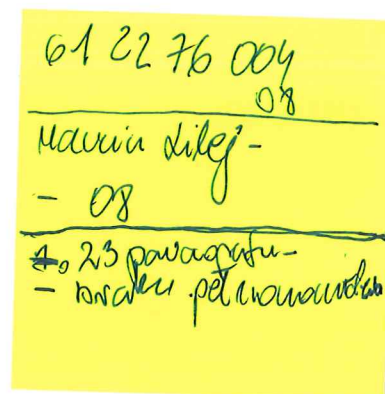 61 22 76 004
08
Marcin Lilej -
- 08
1, 23 paragrafu -
- braku pełnomocnictwa